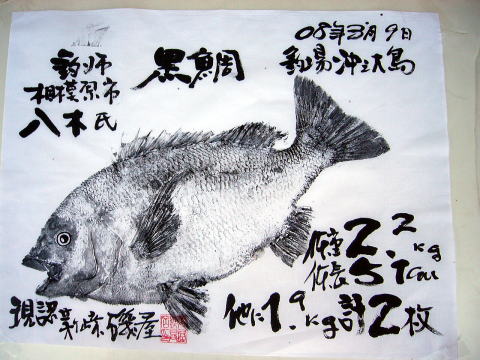 08年3月9日
釣場沖之大島
黒鯛
釣師
相模原市
八木氏
体重2.2kg
体長51cm
他に1.9kg計2枚
現認 磯屋